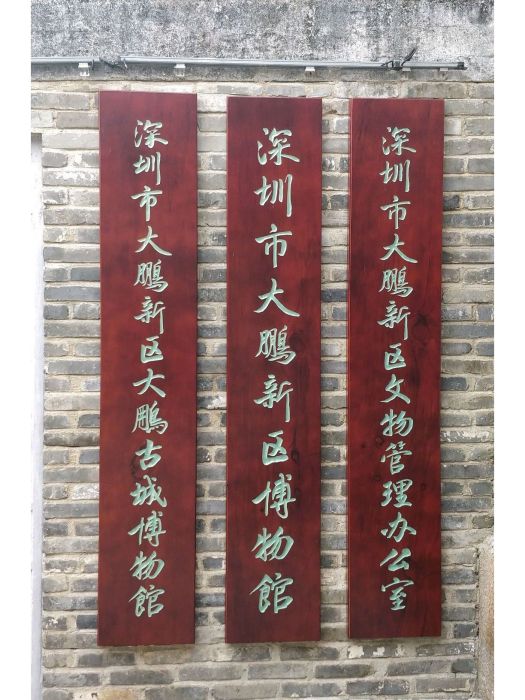 深圳市大鹏新区大鹏古城博物馆
深圳市大鹏新区博物馆
深圳市大鹏新区文物管理办公室